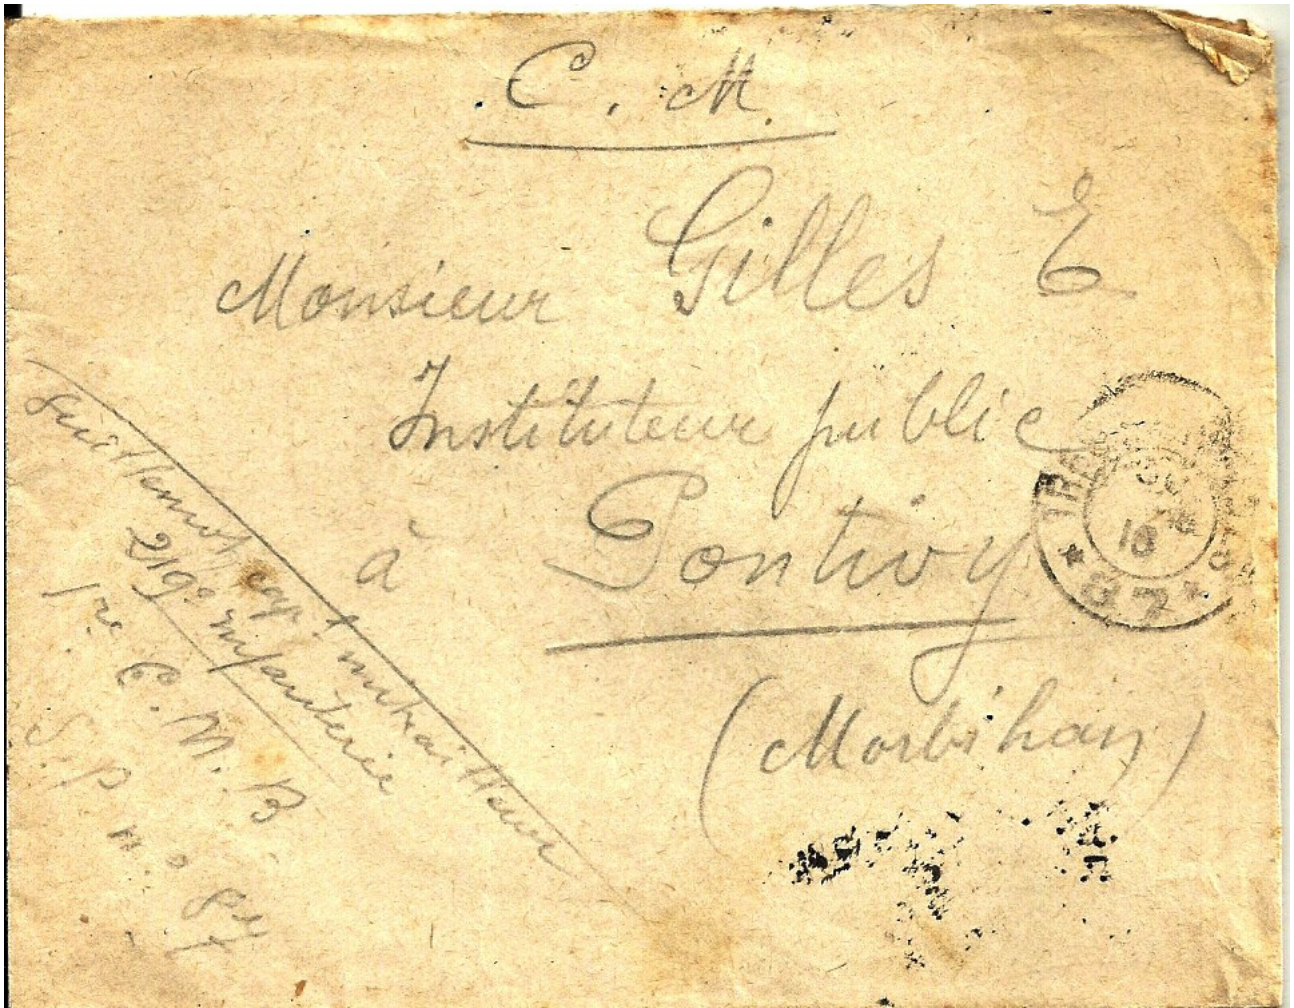 C. M.
Monsieur Gilles E
Instituteur public
à Pontivy
(Morbihan)
Guillemot cap. mitrailleur
219e infanterie
1re C. M. B
S. P. no 87
TRE
10
* 87 *